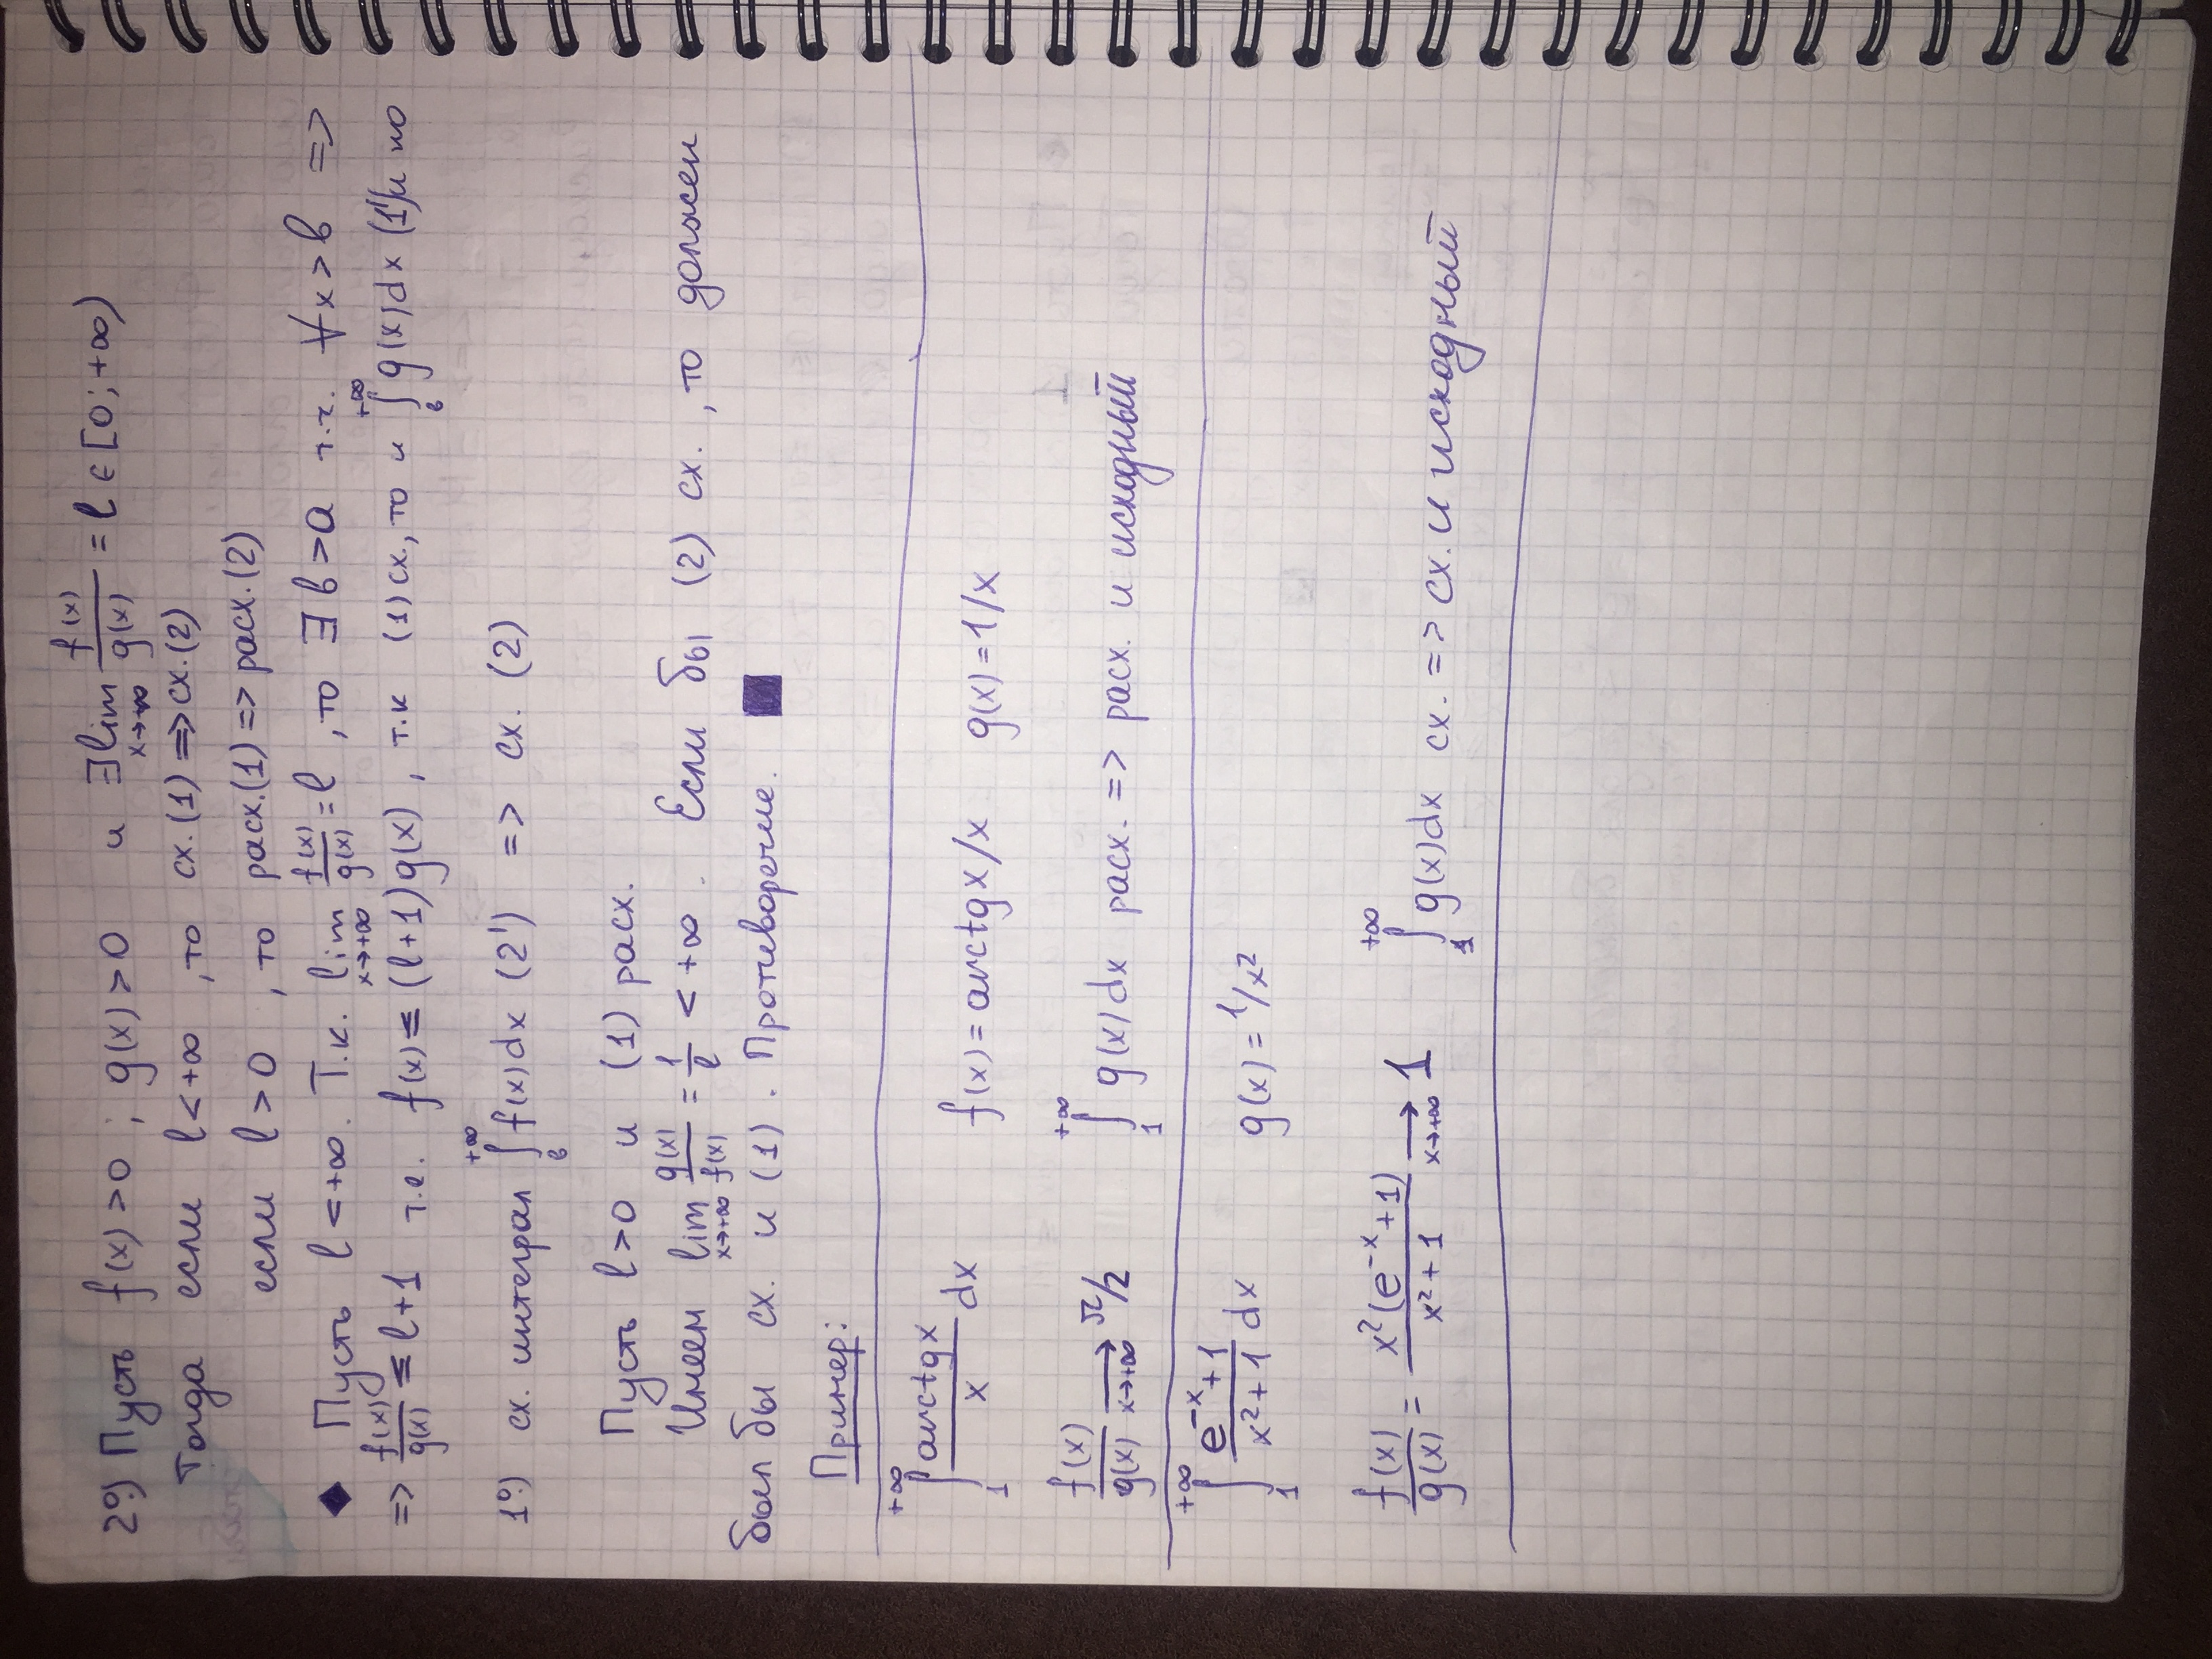 2º.) Пусть f(x) > 0 ; g(x) > 0 и ∃ lim x→+∞ f(x)/g(x) = l ∈ [0; +∞)
Тогда если l < +∞ , то сх. (1) => сх. (2)
если l > 0 , то расх. (1) => расх. (2)
◆ Пусть l < +∞. Т.к. lim x→+∞ f(x)/g(x) = l , то ∃ b > a т.ч. ∀x > b =>
=> f(x)/g(x) ≤ l+1 т.е. f(x) ≤ (l+1)g(x) , т.к (1) сх., то и ∫_b^{+∞} g(x)dx (1') и по
1º.) сх. интеграл ∫_b^{+∞} f(x)dx (2') => сх. (2)
Пусть l > 0 и (1) расх.
Имеем lim x→+∞ g(x)/f(x) = 1/l < +∞ . Если бы (2) сх. , то должен
был бы сх. и (1) . Противоречие. ■
Пример:
∫_1^{+∞} arctgx/x dx f(x) = arctgx/x g(x) = 1/x
f(x)/g(x) →_{x→+∞} π/2 ∫_1^{+∞} g(x)dx расх. => расх. и исходный
∫_1^{+∞} (e^{-x}+1)/(x²+1) dx g(x) = 1/x²
f(x)/g(x) = x²(e^{-x}+1)/(x²+1) →_{x→+∞} 1 ∫_1^{+∞} g(x)dx сх. => сх. и исходный